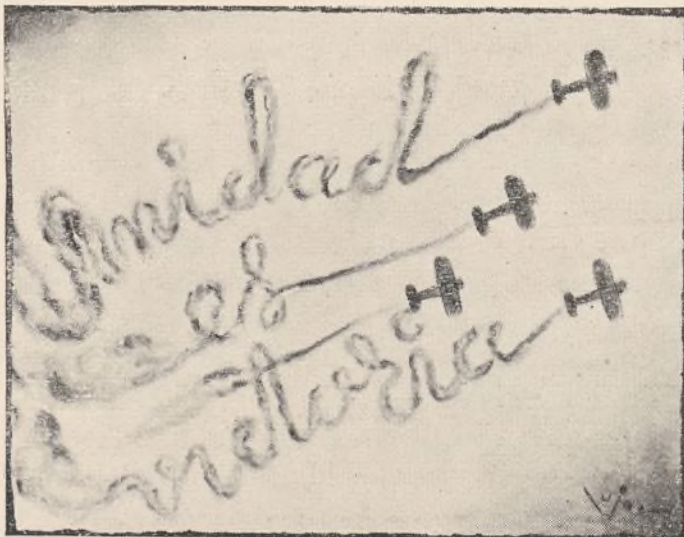 Unidad
es
victoria